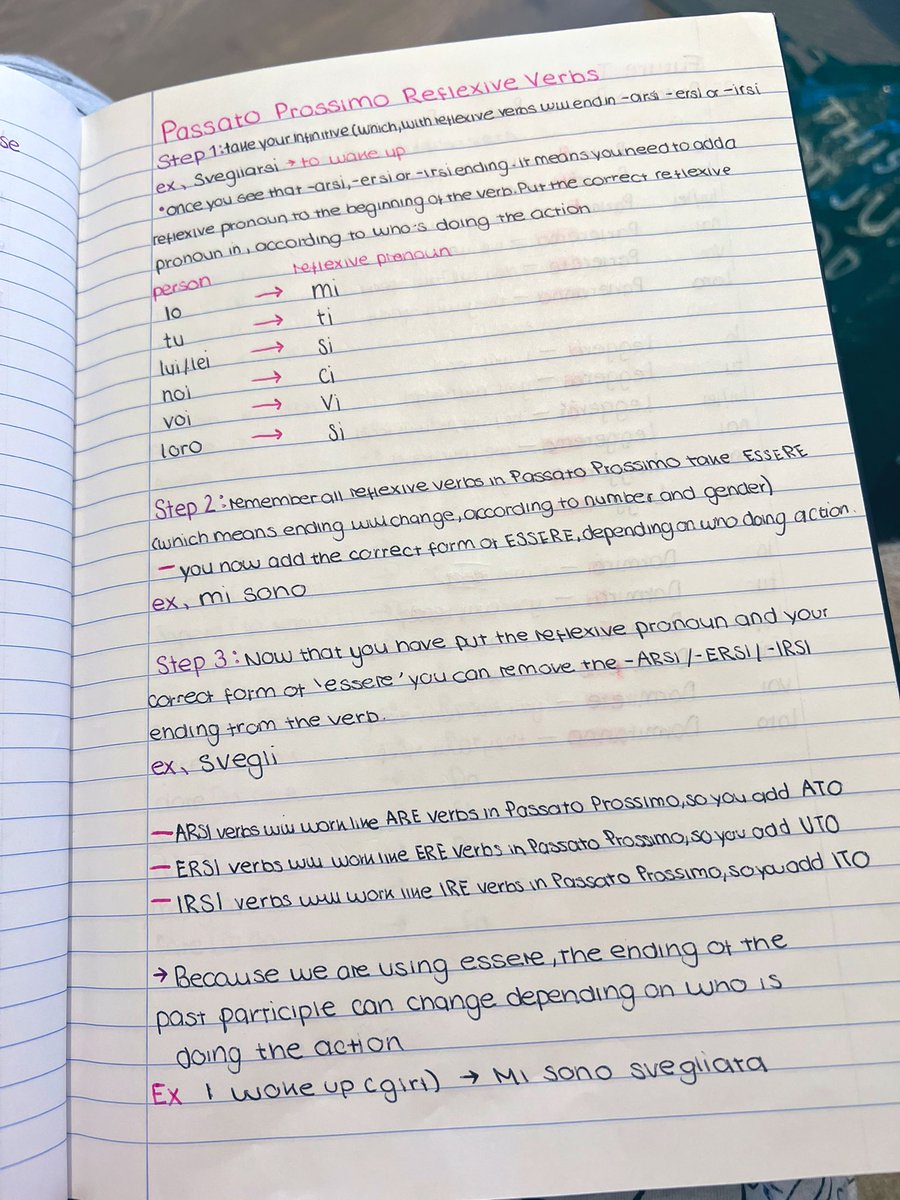 se
Passato Prossimo Reflexive Verbs
Step 1: take your infinitive (which, with reflexive verbs will end in -arsi -ersi or -irsi
ex, Svegliarsi → to wake up
• once you see that -arsi, -ersi or -irsi ending. it means you need to add a
reflexive pronoun to the beginning of the verb. Put the correct reflexive
pronoun in, according to who's doing the action
person reflexive pronoun
Io → mi
tu → ti
lui/lei → si
noi → ci
voi → vi
loro → si
Step 2: remember all reflexive verbs in Passato Prossimo take ESSERE
(which means ending will change, according to number and gender)
— you now add the correct form of ESSERE, depending on who doing action.
ex, mi sono
Step 3: Now that you have put the reflexive pronoun and your
correct form of 'essere' you can remove the -ARSI/-ERSI/-IRSI
ending from the verb.
ex, svegli
— ARSI verbs will work like ARE verbs in Passato Prossimo, so you add ATO
— ERSI verbs will work like ERE verbs in Passato Prossimo, so you add UTO
— IRSI verbs will work like IRE verbs in Passato Prossimo, so you add ITO
→ Because we are using essere, the ending of the
past participle can change depending on who is
doing the action
Ex I woke up (girl) → Mi sono svegliata
THIS